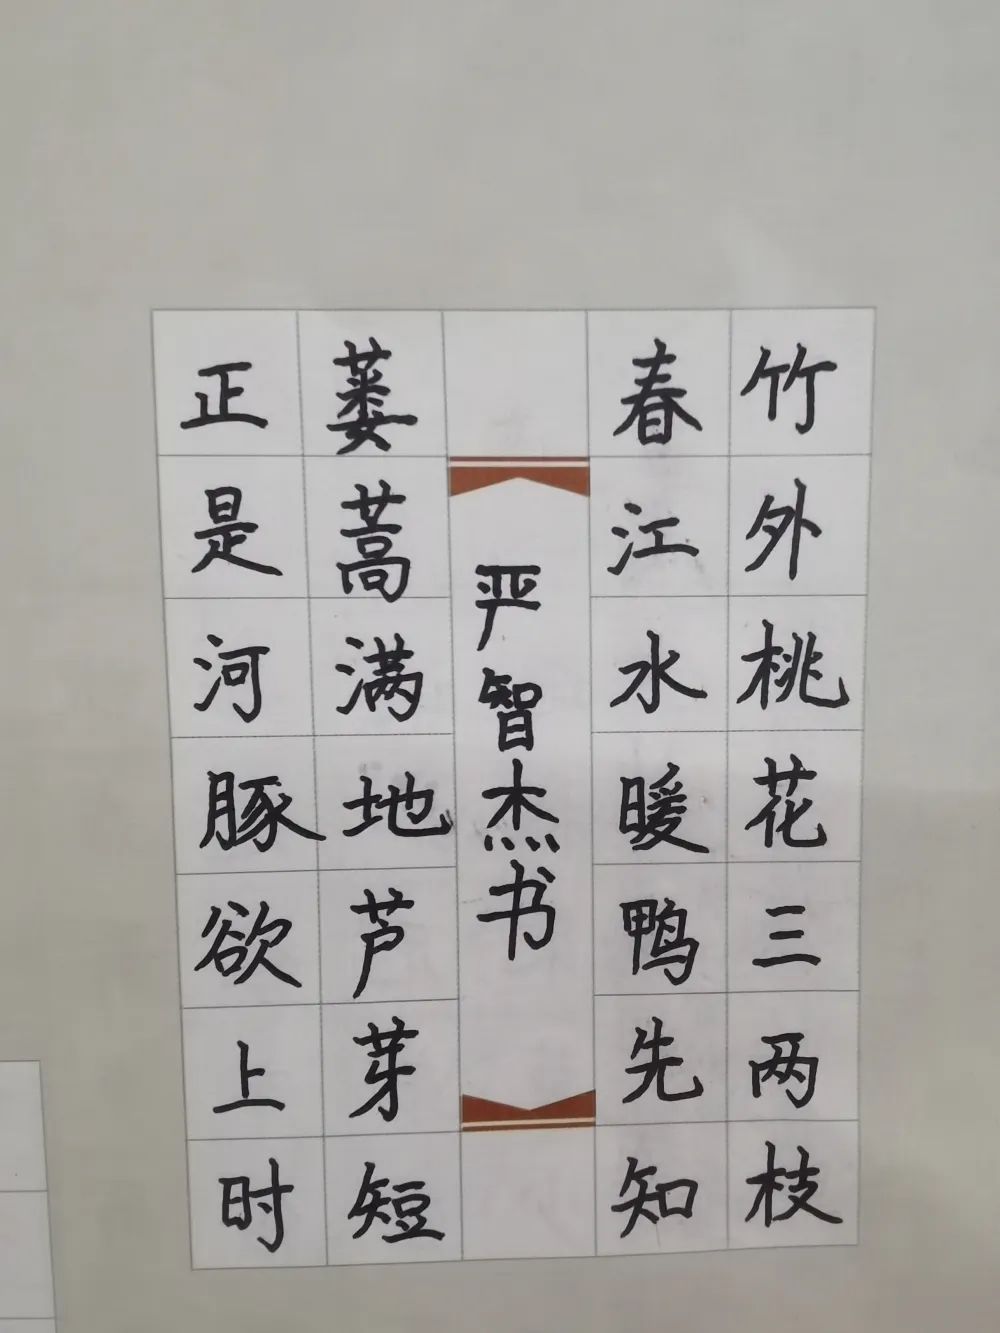 竹外桃花三两枝
春江水暖鸭先知
严智杰书
蒌蒿满地芦芽短
正是河豚欲上时